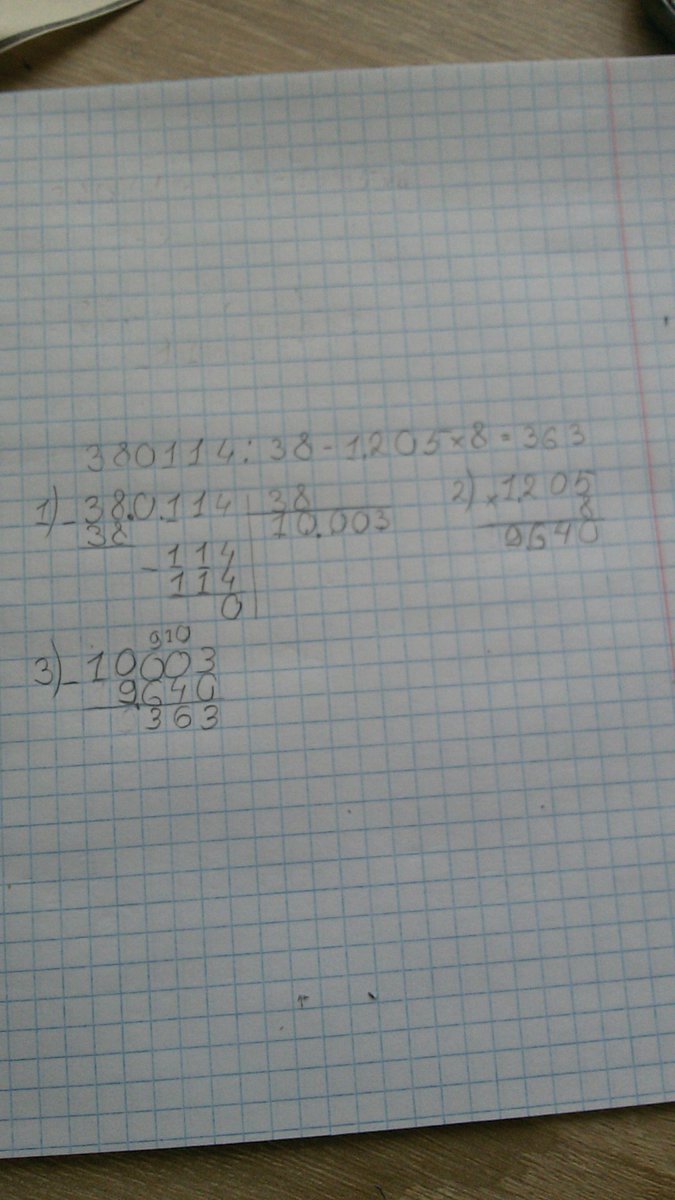 380114: 38 - 1.205 × 8 = 363
1) - 38.0.114 | 38
38 | 10.003
- 114
114
0
2) × 1.205
8
9640
3) - 10003
910
9640
363